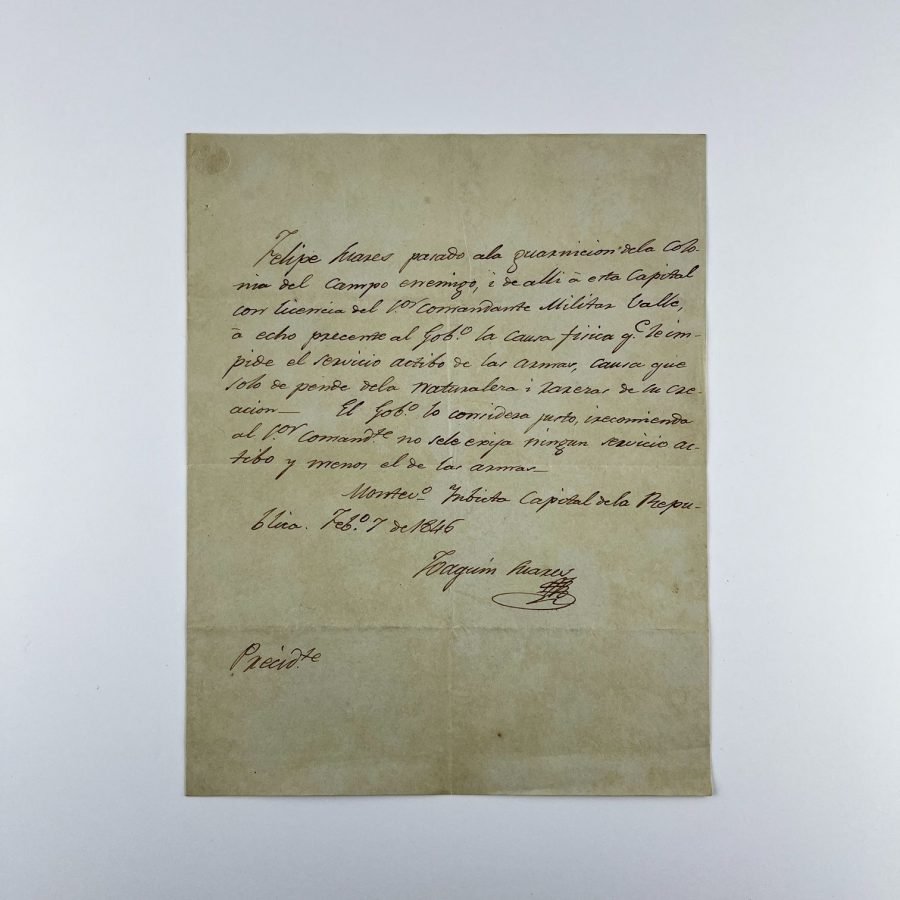 Felipe Suares pasado ala guarnicion dela Colo-
nia del Campo enemigo, i de alli à esta Capital
con licencia del S.or Comandante Militar Valle,
à echo precente al Gob.o la causa fisica q.e le im-
pide el servicio actibo de las armas, causa que
solo de pende dela Naturalera i rareras de su cre-
acion— El Gob.o lo considera justo, i recomienda
al S.or Comand.te no sele exija ningun servicio ac-
tibo y menos el de las armas—
Montev.o Inbicta Capital dela Repu-
blica. Feb.o 7 de 1846
Joaquin Suares
Precid.te